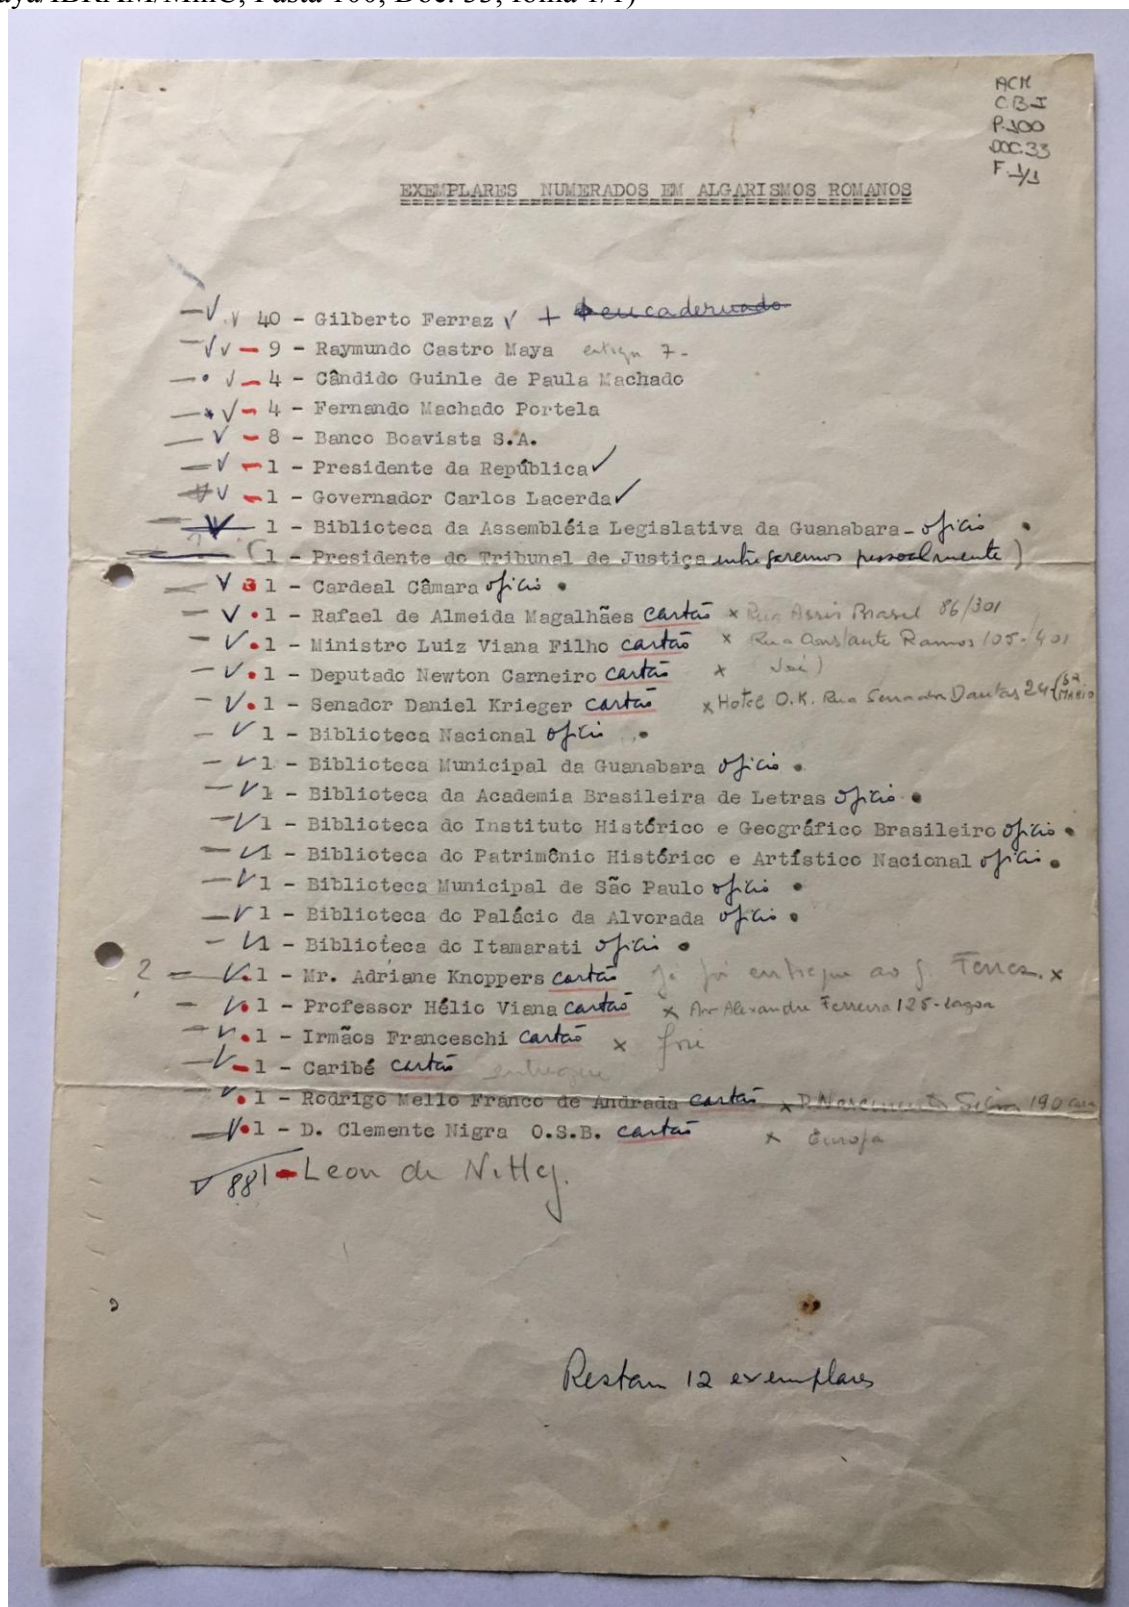 aya/IBRAM/MinC, Pasta 100, Doc. 33, folha 1/1)
ACM
C.B-I
P.100
DOC.33
F.1/1
EXEMPLARES NUMERADOS EM ALGARISMOS ROMANOS
40 - Gilberto Ferraz √ + encadernado
9 - Raymundo Castro Maya 7-
4 - Cândido Guinle de Paula Machado
4 - Fernando Machado Portela
8 - Banco Boavista S.A.
1 - Presidente da República √
1 - Governador Carlos Lacerda √
1 - Biblioteca da Assembléia Legislativa da Guanabara - ofício
(1 - Presidente do Tribunal de Justiça entregaremos pessoalmente)
1 - Cardeal Câmara ofício
1 - Rafael de Almeida Magalhães cartão x Rua Assis Brasil 86/301
1 - Ministro Luiz Viana Filho cartão x Rua Constante Ramos 105-401
1 - Deputado Newton Carneiro cartão x
1 - Senador Daniel Krieger cartão x Hotel O.K. Rua Senador Dantas 24
1 - Biblioteca Nacional ofício
1 - Biblioteca Municipal da Guanabara ofício
1 - Biblioteca da Academia Brasileira de Letras ofício
1 - Biblioteca do Instituto Histórico e Geográfico Brasileiro ofício
1 - Biblioteca do Patrimônio Histórico e Artístico Nacional ofício
1 - Biblioteca Municipal de São Paulo ofício
1 - Biblioteca do Palácio da Alvorada ofício
1 - Biblioteca do Itamarati ofício
? 1 - Mr. Adriane Knoppers cartão já foi entregue ao x
1 - Professor Hélio Viana cartão x Av Alexandre Ferreira 125-Lagoa
1 - Irmãos Franceschi cartão x
1 - Caribé cartão entregue
1 - Rodrigo Mello Franco de Andrada cartão x R. Nascimento Silva 190 casa
1 - D. Clemente Nigra O.S.B. cartão x Europa
88 1 - Leon de
Restam 12 exemplares